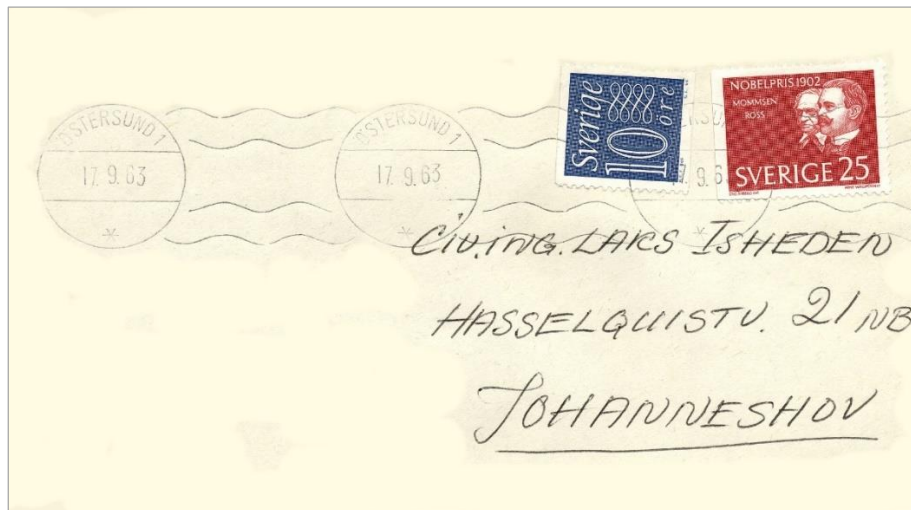 ÖSTERSUND 1
17. 9. 63
ÖSTERSUND 1
17. 9. 63
Sverige
10 öre
NOBELPRIS 1902
MOMMSEN
ROSS
SVERIGE 25
CIV.ING. LARS ISHEDEN
HASSELQUISTV. 21 NB
JOHANNESHOV